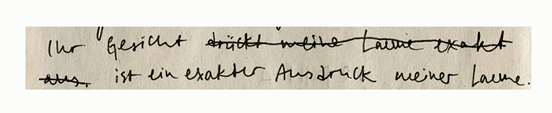 Ihr Gesicht drückt meine Laune exakt
aus. ist ein exakter Ausdruck meiner Laune.